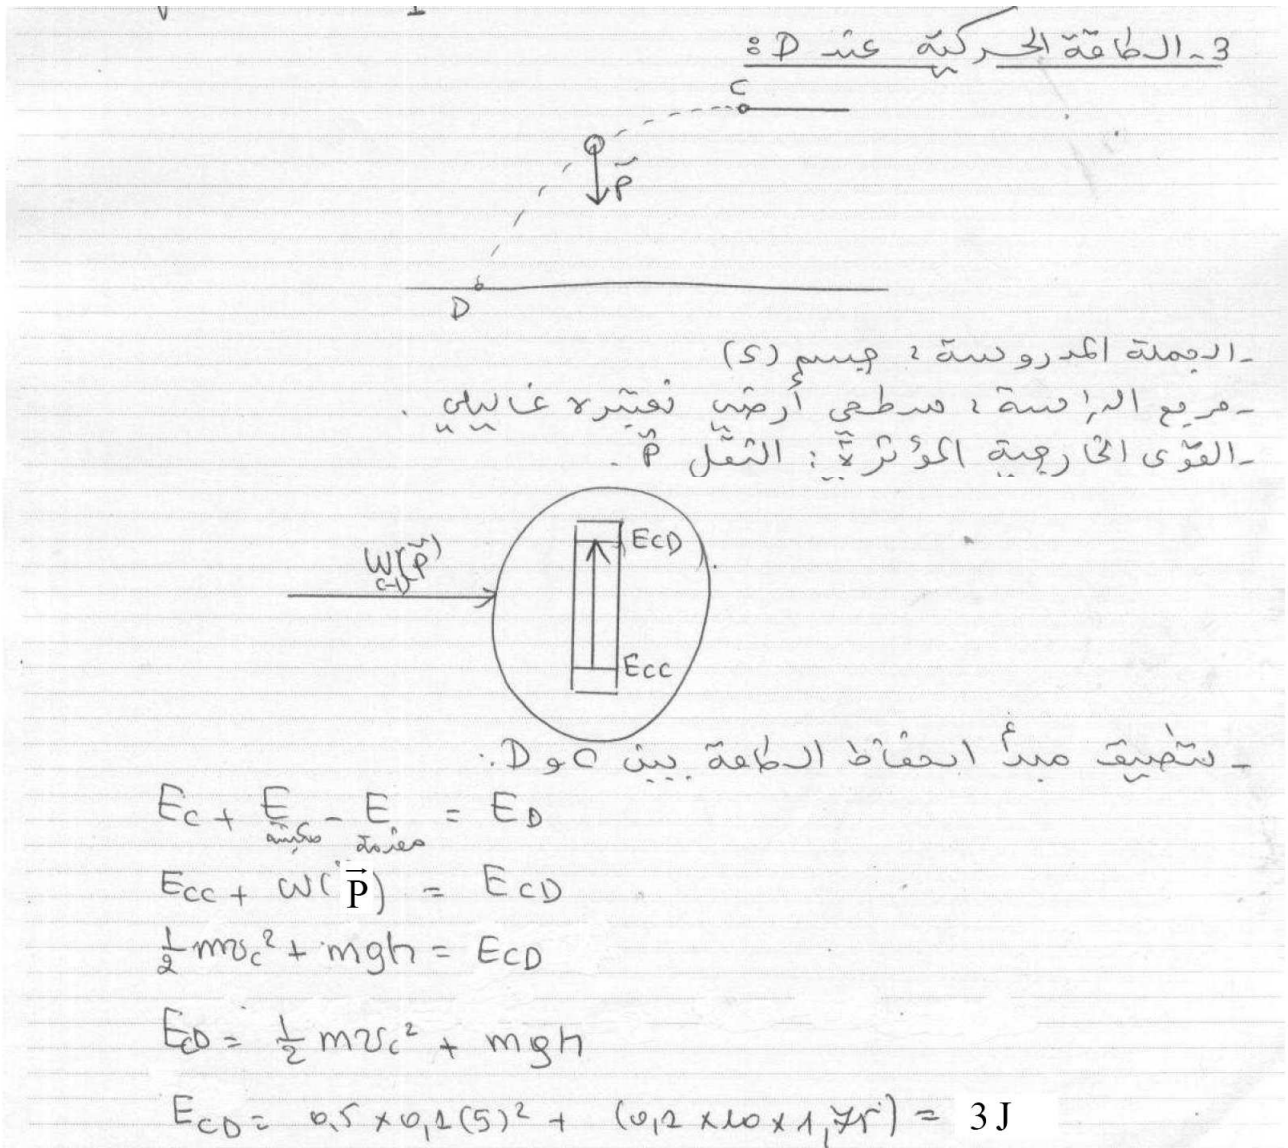 3- الطاقة الحركية عند D:
C
P⃗
D
- الجملة المدروسة : جسم (S)
- مرجع الدراسة : سطحي أرضي نعتبره غاليلي .
- القوى الخارجية المؤثرة : الثقل P⃗ .
W(P⃗)
C-D
ECD
ECC
- بتطبيق مبدأ انحفاظ الطاقة بين C و D :
EC + E مكتسبة - E مقدمة = ED
ECC + W(P⃗) = ECD
½ mvc² + mgh = ECD
ECD = ½ mvc² + mgh
ECD = 0,5 × 0,1(5)² + (0,1 × 10 × 1,75) = 3 J